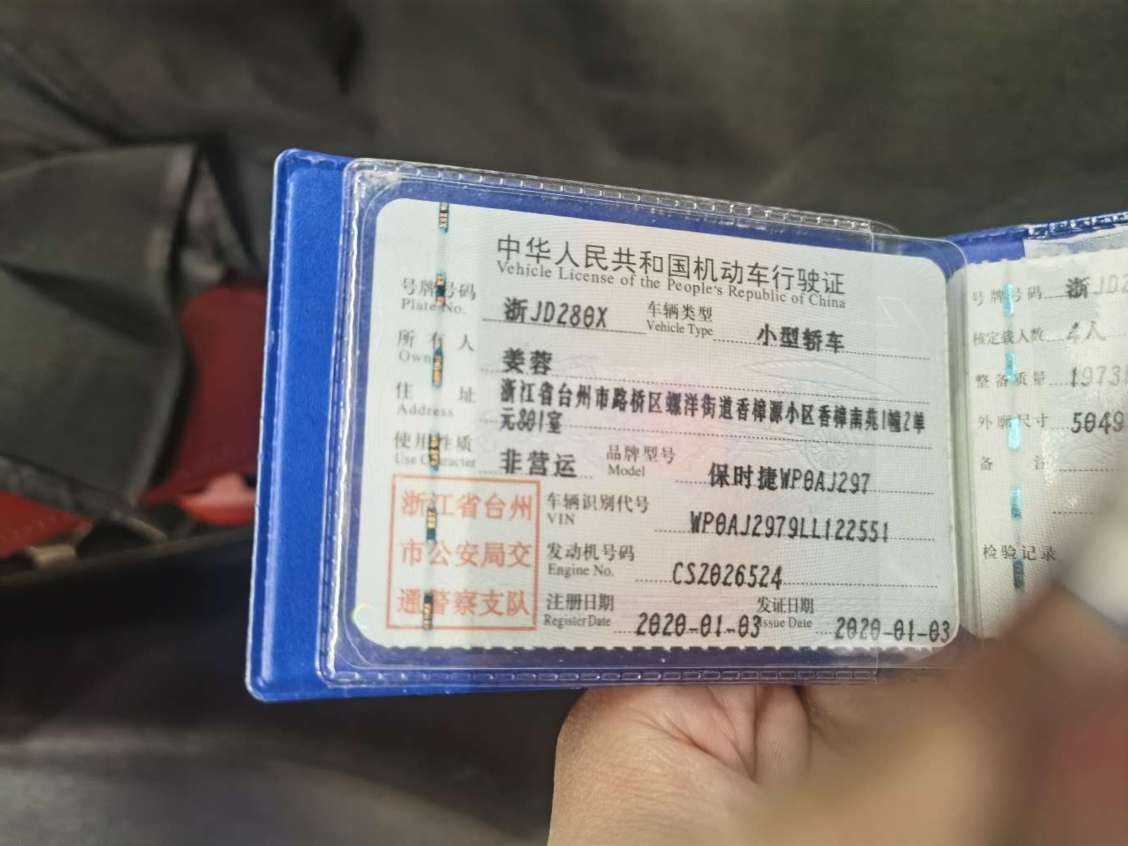 中华人民共和国机动车行驶证
Vehicle License of the People's Republic of China
号牌号码 浙JD280X 车辆类型 小型轿车
Plate No. Vehicle Type
所有人 姜蓉
Owner
住址 浙江省台州市路桥区螺洋街道香樟源小区香樟南苑1幢2单
Address 元801室
使用性质 非营运 品牌型号 保时捷WP0AJ297
Use Character Model
浙江省台州
市公安局交
通警察支队
车辆识别代号 WP0AJ2979LL122551
VIN
发动机号码 CS2026524
Engine No.
注册日期 2020-01-03 发证日期 2020-01-03
Register Date Issue Date
号牌号码 浙JD2
核定载人数 4人
整备质量 1973
外廓尺寸 5049
备注
检验记录